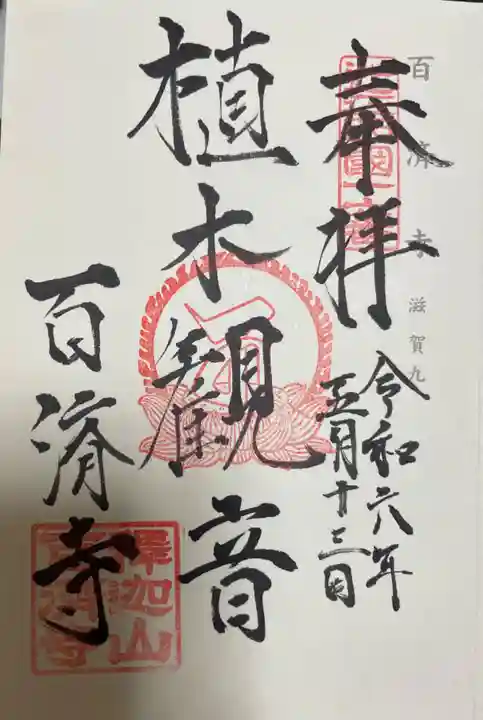 百済寺 滋賀九
奉拝
令和六年
五月十三日
植木観音
百済寺
釈迦山
百済寺